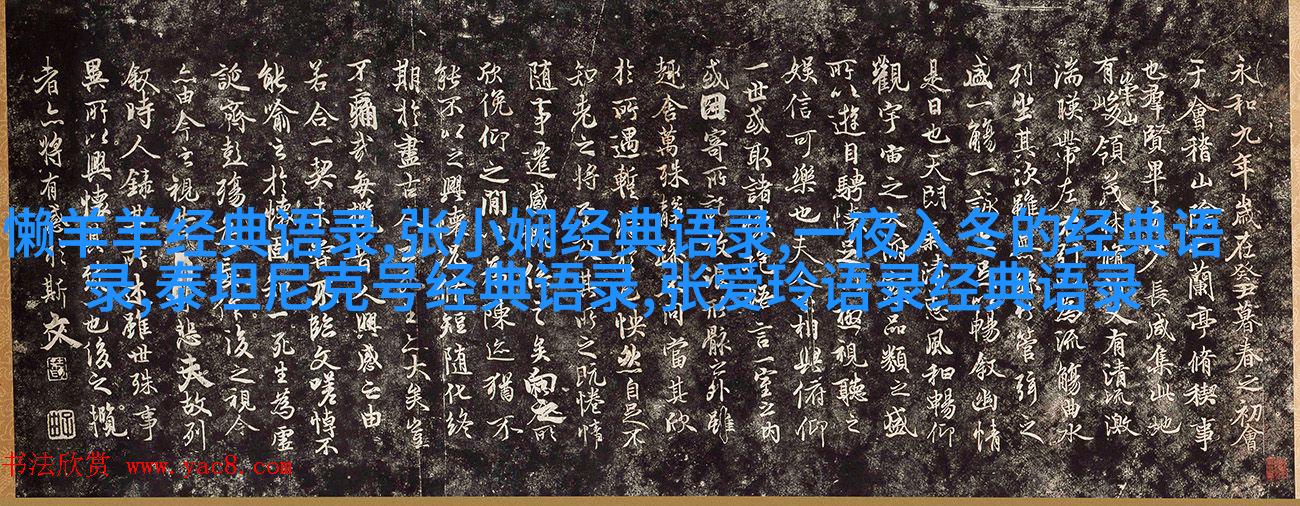 懒羊羊经典语录,张小娴经典语录,一夜入冬的经典语
录,泰坦尼克号经典语录,张爱玲语录经典语录
永和九年歲在癸丑暮春之初會
于會稽山蘭亭脩稧事
也羣賢畢少長咸集此地
有崇山峻領茂林又有清流激
湍暎帶左為流觴曲水
列坐其次雖無管弦之
盛一觴一詠暢敘幽情
是日也天朗風和暢仰
觀宇宙之品類之盛
所以遊目騁極視聽之
娛信可樂也夫相與俯仰
一世或取諸悟言一室之內
或因寄所形骸之外雖
趣舍萬殊同當其欣
於所遇暫怏然自足不
知老之將其所之既惓情
隨事遷感係之矣向之所
欣俛仰之閒陳迹猶不
能不以之興短隨化終
期於盡古大矣豈
不痛哉每興感之由
若合一契未臨文嗟悼不
能喻之於懷一死生為虛
誕齊彭殤後之視今
亦由今之視悲夫故列
敘時人錄雖世殊事
異所以興懷也後之攬
者亦將有於斯文
书法欣赏 www.yac8.com